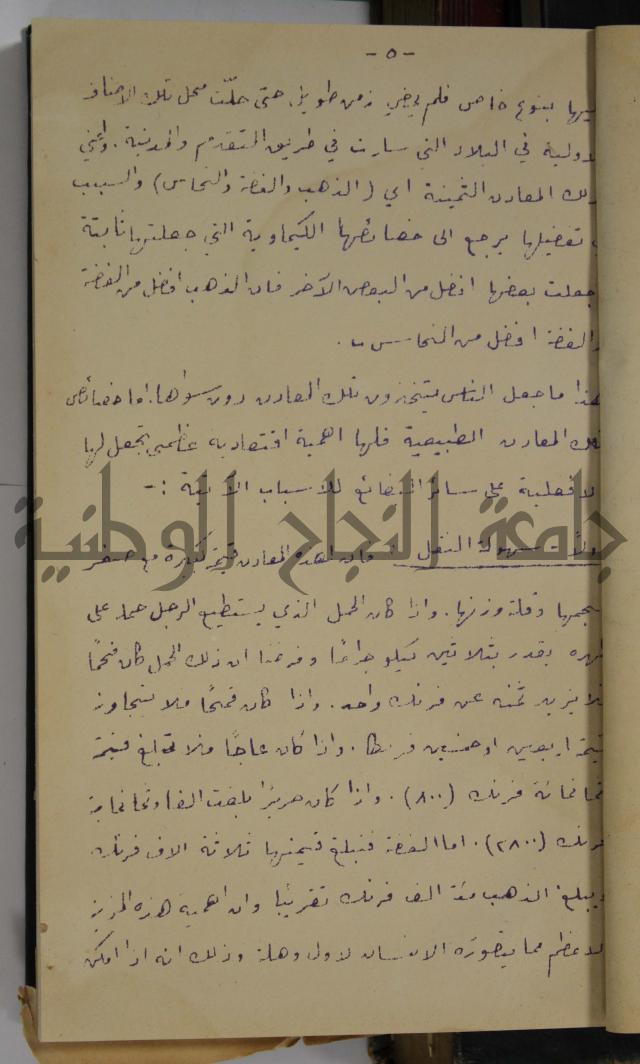 - ٥ -
فيها بنوع خاص فلم يمضِ زمن طويل حتى حلّت محل تلك الاصناف
الاولية في البلاد التي سارت في طريق التقدم والمدنية. واعني
تلك المعادن الثمينة اي (الذهب والفضة والنحاس) والسبب
تفضيلها يرجع الى خصائصها الكيماوية التي جعلتها ثابتة
جعلت بعضها افضل من البعض الآخر فان الذهب افضل من الفضة
والفضة افضل من النحاس .
هذا ما جعل الناس يتخذون تلك المعادن دون سواها. اما خصائص
تلك المعادن الطبيعية فلها اهمية اقتصادية عظمى تجعل لها
الافضلية على سائر البضائع للاسباب الآتية :-
اولاً - سهولة النقل : فان لهذه المعادن قيمة كبيرة مع صغر
حجمها وقلة وزنها. واذا كان الحمل الذي يستطيع الرجل حمله على
ظهره يقدر بثلاثين كيلو جرامًا وفرضنا ان ذلك الحمل كان فحمًا
فلا يزيد ثمنه عن فرنك واحد. واذا كان قمحًا فلا يتجاوز
قيمة اربعين او خمسين فرنكا. واذا كان عاجًا فلا تبلغ قيمته
ثمانمائة فرنك (٨٠٠). واذا كان حريرًا بلغت الفا وثمانماية
فرنك (٢٨٠٠). اما الفضة فتبلغ قيمتها ثلاثة الاف فرنك
ويبلغ الذهب مئة الف فرنك تقريبًا وان اهمية هذه المزية
لاعظم مما يتصوره الانسان لاول وهلة وذلك انه اذا امكن
جامعة النجاح الوطنية